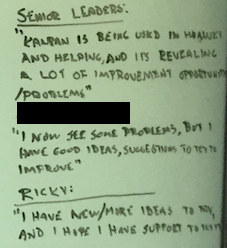 SENIOR LEADERS:
"KANBAN IS BEING USED IN
AND HELPING, AND ITS REVEALING
A LOT OF IMPROVEMENT OPPORTUNITI
/PROBLEMS"
"I NOW SEE SOME PROBLEMS, BUT I
HAVE GOOD IDEAS, SUGGESTIONS TO TRY TO
IMPROVE"
RICKY:
"I HAVE NEW/MORE IDEAS TO TRY,
AND I HOPE I HAVE SUPPORT TO TRY